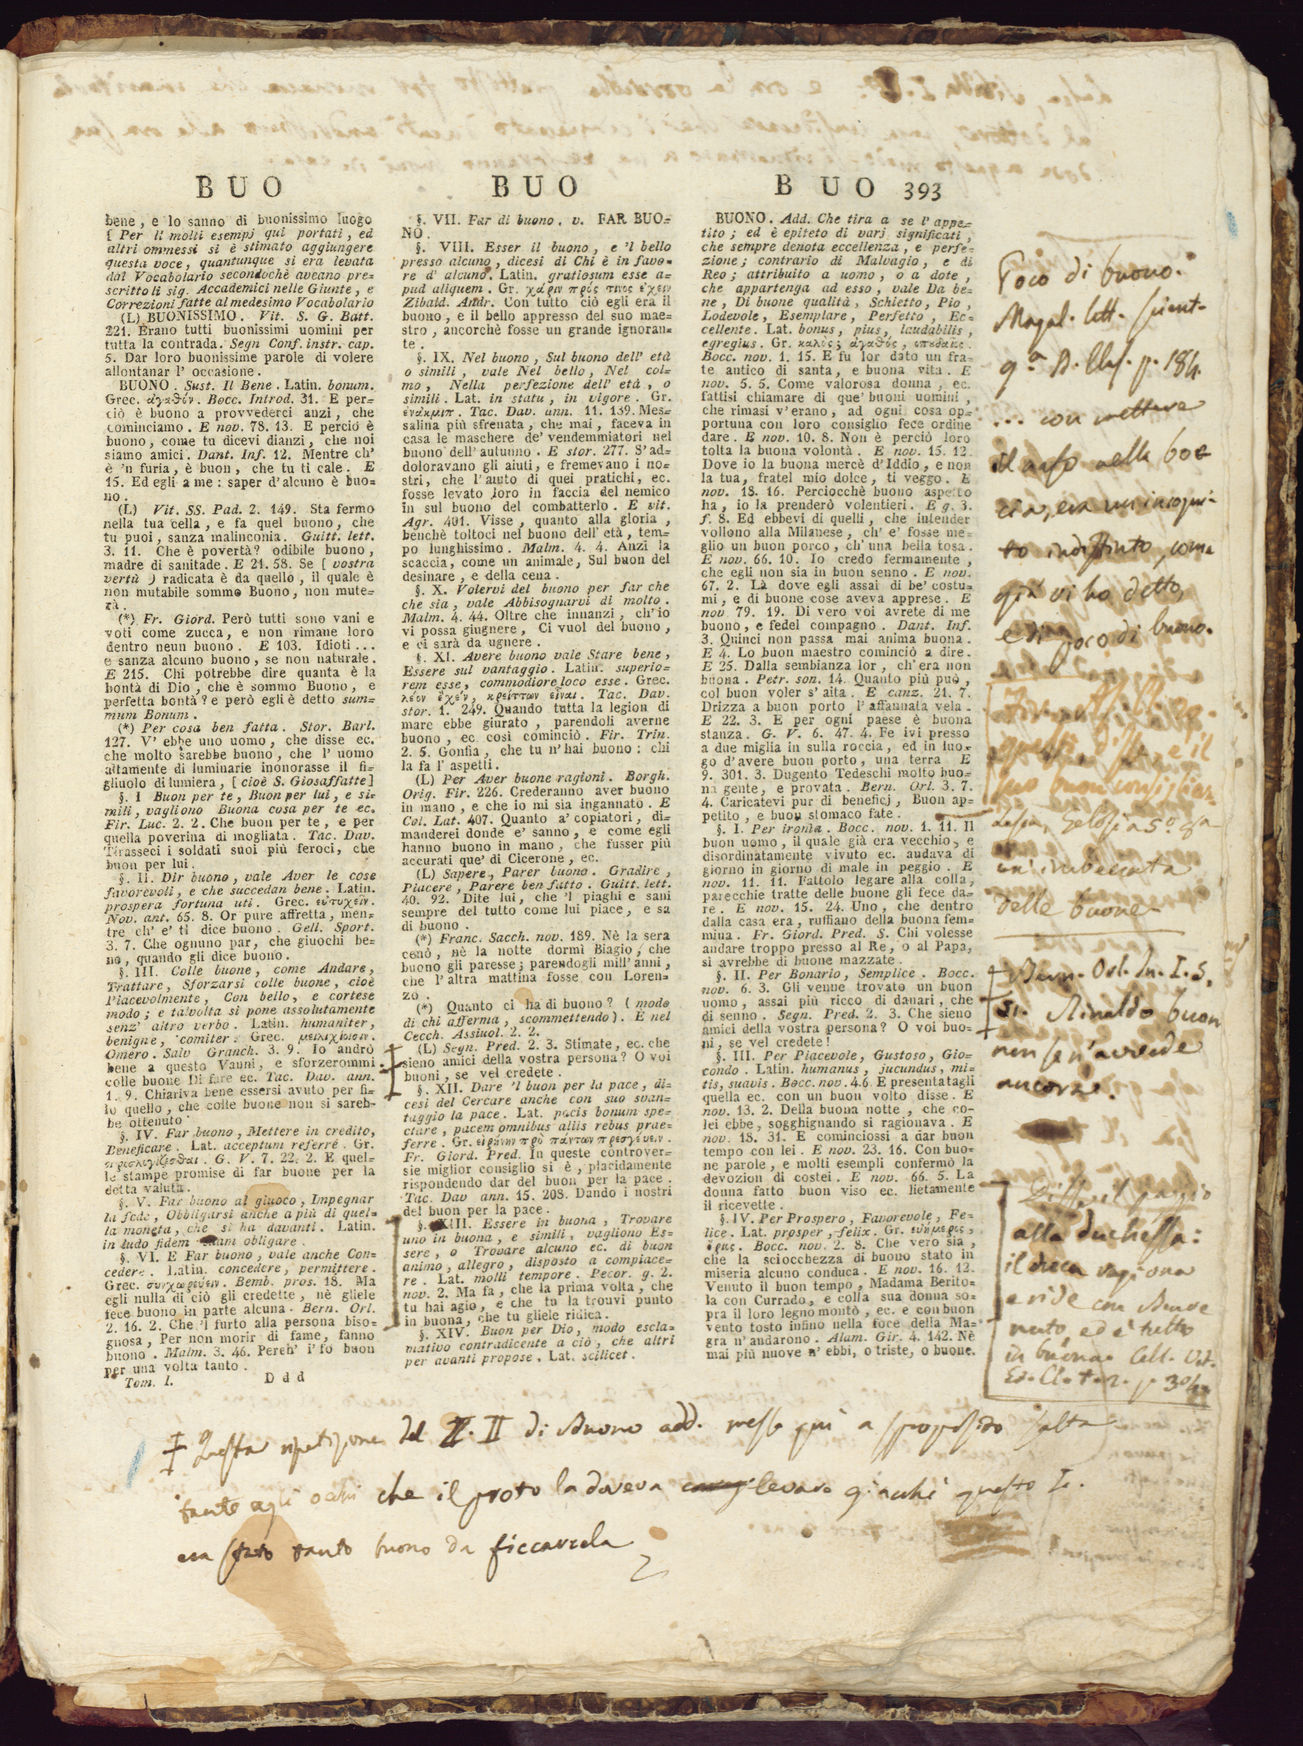 BUO BUO BUO 393
bene, e lo sanno di buonissimo luogo
[ Per li molti esempj qui portati, ed
altri ommessi si è stimato aggiungere
questa voce, quantunque si era levata
dal Vocabolario secondochè aveano pre=
scritto li sig. Accademici nelle Giunte, e
Correzioni fatte al medesimo Vocabolario
(L) BUONISSIMO. Vit. S. G. Batt.
221. Erano tutti buonissimi uomini per
tutta la contrada. Segn Conf. instr. cap.
5. Dar loro buonissime parole di volere
allontanar l' occasione.
BUONO. Sust. Il Bene. Latin. bonum.
Grec. ἀγαθόν. Bocc. Introd. 31. E per=
ciò è buono a provvederci anzi, che
cominciamo. E nov. 78. 13. E perciò è
buono, come tu dicevi dianzi, che noi
siamo amici. Dant. Inf. 12. Mentre ch'
è 'n furia, è buon, che tu ti cale. E
15. Ed egli a me: saper d'alcuno è buo=
no.
(L) Vit. SS. Pad. 2. 149. Sta fermo
nella tua cella, e fa quel buono, che
tu puoi, sanza malinconia. Guitt. lett.
3. 11. Che è povertà? odibile buono,
madre di sanitade. E 21. 58. Se [ vostra
vertù ) radicata è da quello, il quale è
non mutabile sommo Buono, non mute=
rà.
(*) Fr. Giord. Però tutti sono vani e
voti come zucca, e non rimane loro
dentro neun buono. E 103. Idioti ...
e sanza alcuno buono, se non naturale.
E 215. Chi potrebbe dire quanta è la
bontà di Dio, che è sommo Buono, e
perfetta bontà? e però egli è detto sum=
mum Bonum.
(*) Per cosa ben fatta. Stor. Barl.
127. V' ebbe uno uomo, che disse ec.
che molto sarebbe buono, che l' uomo
altamente di luminarie inonorasse il fi=
gliuolo di lumiera, [ cioè S. Giosaffatte]
§. I Buon per te, Buon per lui, e si=
mili, vagliono Buona cosa per te ec.
Fir. Luc. 2. 2. Che buon per te, e per
quella poverina di mogliata. Tac. Dav.
Tirasseci i soldati suoi più feroci, che
buon per lui.
§. II. Dir buono, vale Aver le cose
favorevoli, e che succedan bene. Latin.
prospera fortuna uti. Grec. εὐτυχεῖν.
Nov. ant. 65. 8. Or pure affretta, men=
tre ch' e' ti dice buono. Gell. Sport.
3. 7. Che ognuno par, che giuochi be=
ne, quando gli dice buono.
§. III. Colle buone, come Andare,
Trattare, Sforzarsi colle buone, cioè
Piacevolmente, Con bello, e cortese
modo; e talvolta si pone assolutamente
senz' altro verbo. Latin. humaniter,
benigne, comiter. Grec.
Omero. Salv Granch. 3. 9. Io andrò
bene a questo Vanni, e sforzerommi
colle buone Di fare ec. Tac. Dav. ann.
1. 9. Chiariva bene essersi avuto per fi=
lo quello, che colle buone non si sareb=
be ottenuto
§. IV. Far buono, Mettere in credito,
Beneficare. Lat. acceptum referre. Gr.
G. V. 7. 22. 2. E quel=
le stampe promise di far buone per la
detta valuta.
§. V. Far buono al giuoco, Impegnar
la fede, Obbligarsi anche a più di quel=
la moneta, che si ha davanti. Latin.
in ludo fidem obligare.
§. VI. E Far buono, vale anche Con=
cedere. Latin. concedere, permittere.
Grec. συγχωρεῖν. Bemb. pros. 18. Ma
egli nulla di ciò gli credette, nè gliele
fece buono in parte alcuna. Bern. Orl.
2. 16. 2. Che 'l furto alla persona biso=
gnosa, Per non morir di fame, fanno
buono. Malm. 3. 46. Perch' i' fo buon
per una volta tanto.
Tom. I. Ddd
§. VII. Far di buono. v. FAR BUO=
NO.
§. VIII. Esser il buono, e 'l bello
presso alcuno, dicesi di Chi è in favo=
re d' alcuno. Latin. gratiosum esse a=
pud aliquem. Gr. χάριν πρός τινος ἔχειν
Zibald. Andr. Con tutto ciò egli era il
buono, e il bello appresso del suo mae=
stro, ancorchè fosse un grande ignoran=
te.
§. IX. Nel buono, Sul buono dell' età
o simili, vale Nel bello, Nel col=
mo, Nella perfezione dell' età, o
simili. Lat. in statu, in vigore. Gr.
Tac. Dav. ann. 11. 139. Mes=
salina più sfrenata, che mai, faceva in
casa le maschere de' vendemmiatori nel
buono dell' autunno. E stor. 277. S' ad=
doloravano gli aiuti, e fremevano i no=
stri, che l' aiuto di quei pratichi, ec.
fosse levato loro in faccia del nemico
in sul buono del combatterlo. E vit.
Agr. 401. Visse, quanto alla gloria,
benchè toltoci nel buono dell' età, tem=
po lunghissimo. Malm. 4. 4. Anzi la
scaccia, come un animale, Sul buon del
desinare, e della cena.
§. X. Volervi del buono per far che
che sia, vale Abbisognarvi di molto.
Malm. 4. 44. Oltre che innanzi, ch' io
vi possa giugnere, Ci vuol del buono,
e ci sarà da ugnere.
§. XI. Avere buono vale Stare bene,
Essere sul vantaggio. Latin. superio=
rem esse, commodiore loco esse. Grec.
κρείττων εἶναι. Tac. Dav.
stor. 1. 249. Quando tutta la legion di
mare ebbe giurato, parendoli averne
buono, ec così cominciò. Fir. Trin.
2. 5. Gonfia, che tu n' hai buono: chi
la fa l' aspetti.
(L) Per Aver buone ragioni. Borgh.
Orig. Fir. 226. Crederanno aver buono
in mano, e che io mi sia ingannato. E
Col. Lat. 407. Quanto a' copiatori, di=
manderei donde e' sanno, e come egli
hanno buono in mano, che fusser più
accurati que' di Cicerone, ec.
(L) Sapere, Parer buono. Gradire,
Piacere, Parere ben fatto. Guitt. lett.
40. 92. Dite lui, che 'l piaghi e sani
sempre del tutto come lui piace, e sa
di buono.
(*) Franc. Sacch. nov. 189. Nè la sera
cenò, nè la notte dormì Biagio, che
buono gli paresse; parendogli mill' anni,
che l' altra mattina fosse con Loren=
zo.
(*) Quanto ci ha di buono? ( modo
di chi afferma, scommettendo). E nel
Cecch. Assiuol. 2. 2.
(L) Segn. Pred. 2. 3. Stimate, ec. che
sieno amici della vostra persona? O voi
buoni, se vel credete.
§. XII. Dare 'l buon per la pace, di=
cesi del Cercare anche con suo svan=
taggio la pace. Lat. pacis bonum spe=
ctare, pacem omnibus aliis rebus prae=
ferre. Gr. εἰρήνην πρὸ πάντων
Fr. Giord. Pred. In queste controver=
sie miglior consiglio si è, placidamente
rispondendo dar del buon per la pace.
Tac. Dav ann. 15. 208. Dando i nostri
del buon per la pace.
§. XIII. Essere in buona, Trovare
uno in buona, e simili, vagliono Es=
sere, o Trovare alcuno ec. di buon
animo, allegro, disposto a compiace=
re. Lat. molli tempore. Pecor. g. 2.
nov. 2. Ma fa, che la prima volta, che
tu hai agio, e che tu la trovi punto
in buona, che tu gliele ridica.
§. XIV. Buon per Dio, modo escla=
mativo contradicente a ciò, che altri
per avanti propose. Lat. scilicet.
BUONO. Add. Che tira a se l' appe=
tito; ed è epiteto di varj significati,
che sempre denota eccellenza, e perfe=
zione; contrario di Malvagio, e di
Reo; attribuito a uomo, o a dote,
che appartenga ad esso, vale Da be=
ne, Di buone qualità, Schietto, Pio,
Lodevole, Esemplare, Perfetto, Ec=
cellente. Lat. bonus, pius, laudabilis,
egregius. Gr. καλός; ἀγαθός,
Bocc. nov. 1. 15. E fu lor dato un fra=
te antico di santa, e buona vita. E
nov. 5. 5. Come valorosa donna, ec.
fattisi chiamare di que' buoni uomini,
che rimasi v' erano, ad ogni cosa op=
portuna con loro consiglio fece ordine
dare. E nov. 10. 8. Non è perciò loro
tolta la buona volontà. E nov. 15. 12.
Dove io la buona mercè d'Iddio, e non
la tua, fratel mio dolce, ti veggo. E
nov. 18. 16. Perciocchè buono aspetto
ha, io la prenderò volentieri. E g. 3.
f. 8. Ed ebbevi di quelli, che intender
vollono alla Milanese, ch' e' fosse me=
glio un buon porco, ch' una bella tosa.
E nov. 66. 10. Io credo fermamente,
che egli non sia in buon senno. E nov.
67. 2. Là dove egli assai di be' costu=
mi, e di buone cose aveva apprese. E
nov 79. 19. Di vero voi avrete di me
buono, e fedel compagno. Dant. Inf.
3. Quinci non passa mai anima buona.
E 4. Lo buon maestro cominciò a dire.
E 25. Dalla sembianza lor, ch' era non
buona. Petr. son. 14. Quanto più può,
col buon voler s' aita. E canz. 21. 7.
Drizza a buon porto l' affannata vela.
E 22. 3. E per ogni paese è buona
stanza. G. V. 6. 47. 4. Fe ivi presso
a due miglia in sulla roccia, ed in luo=
go d'avere buon porto, una terra E
9. 301. 3. Dugento Tedeschi molto buo=
na gente, e provata. Bern. Orl. 3. 7.
4. Caricatevi pur di beneficj, Buon ap=
petito, e buon stomaco fate.
§. I. Per ironia. Bocc. nov. 1. 11. Il
buon uomo, il quale già era vecchio, e
disordinatamente vivuto ec. andava di
giorno in giorno di male in peggio. E
nov. 11. 11. Fattolo legare alla colla,
parecchie tratte delle buone gli fece da=
re. E nov. 15. 24. Uno, che dentro
dalla casa era, ruffiano della buona fem=
mina. Fr. Giord. Pred. S. Chi volesse
andare troppo presso al Re, o al Papa,
si avrebbe di buone mazzate.
§. II. Per Bonario, Semplice. Bocc.
nov. 6. 3. Gli venne trovato un buon
uomo, assai più ricco di danari, che
di senno. Segn. Pred. 2. 3. Che sieno
amici della vostra persona? O voi buo=
ni, se vel credete!
§. III. Per Piacevole, Gustoso, Gio=
condo. Latin. humanus, jucundus, mi=
tis, suavis. Bocc. nov. 4. 6. E presentatagli
quella ec. con un buon volto disse. E
nov. 13. 2. Della buona notte, che co=
lei ebbe, sogghignando si ragionava. E
nov. 18. 31. E cominciossi a dar buon
tempo con lei. E nov. 23. 16. Con buo=
ne parole, e molti esempli confermò la
devozion di costei. E nov. 66. 5. La
donna fatto buon viso ec. lietamente
il ricevette.
§. IV. Per Prospero, Favorevole, Fe=
lice. Lat. prosper, felix. Gr.
Bocc. nov. 2. 8. Che vero sia,
che la sciocchezza di buono stato in
miseria alcuno conduca. E nov. 16. 12.
Venuto il buon tempo, Madama Berito=
la con Currado, e colla sua donna so=
pra il loro legno montò, ec. e con buon
vento tosto infino nella foce della Ma=
gra n' andarono. Alam. Gir. 4. 142. Nè
mai più nuove n' ebbi, o triste, o buone.
Poco di buono.
Magal. lett. scient.
9ª p. 184.
... con mettere
il naso nella boc
cia, era un incogni-
to indistinto, come
già vi ho detto,
e di poco di buono.
il
suo buon consiglier
Gelosia
un' imbeccata
delle buone.
Bern. Orl. In. I. 5.
51. Rinaldo buon
non se n' avvede
ancora.
alla duchessa:
il duca ragiona
e ride con Benve
nuto, ed è tutto
in buona. Cell. Vit.
p. 304.
Questa ripetizione del §. II di Buono add. messa qui a sproposito salta
tanto agli occhi che il proto la doveva levare giacchè questo L.
era stato tanto buono da ficcarcela